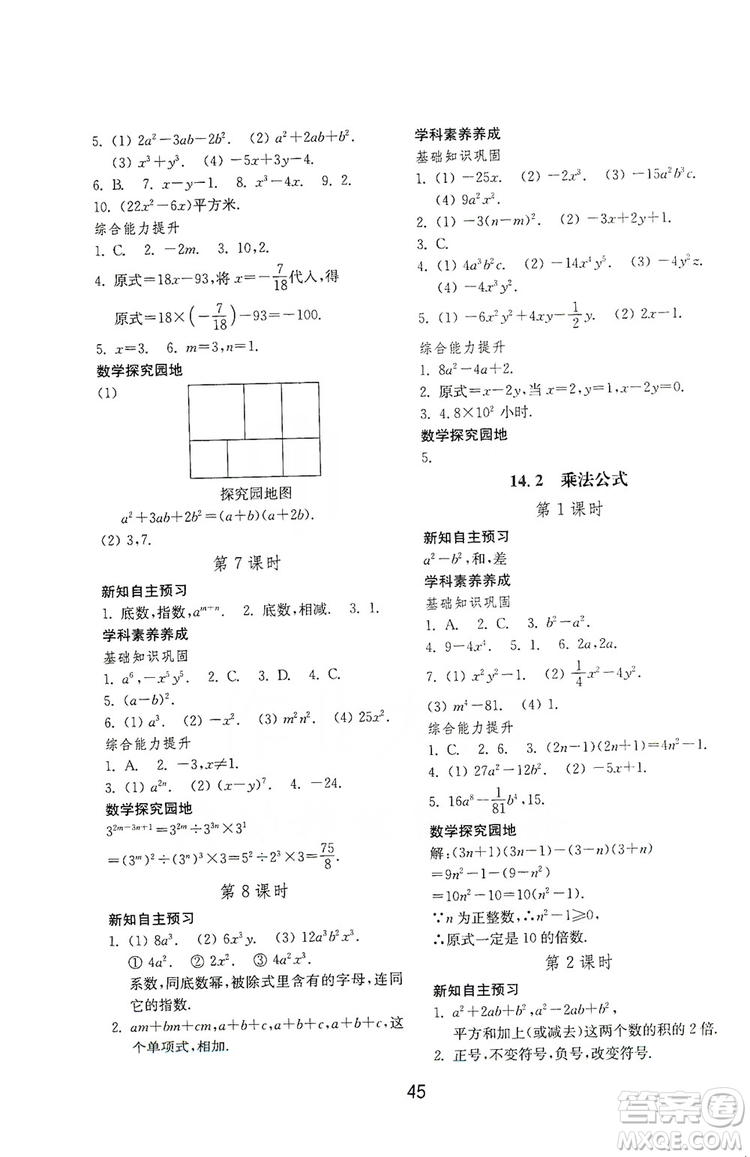 5. (1) 2a²－3ab－2b². (2) a²＋2ab＋b².
(3) x³＋y³. (4) －5x＋3y－10.
6. B. 7. x－y. 8. x³－4x. 9. 2.
10. (22x²－6x)平方米.
综合能力提升
1. C. 2. －2m. 3. 10,2.
4. 原式＝18x－93,将 x＝－7/18代人,得
原式＝18×(－7/18)－93＝－100.
5. x＝3. 6. m＝3,n＝1.
数学探究园地
(1)
探究园地图
a²＋3ab＋2b²＝(a＋b)(a＋2b).
(2) 3,7.
第 7 课时
新知自主预习
1. 底数,指数,aᵐ⁺ⁿ. 2. 底数,相减. 3. 1.
学科素养养成
基础知识巩固
1. a⁶,－x⁵y⁵. 2. C. 3. D. 4. C.
5. (a－b)².
6. (1) a³. (2) －x². (3) m²n². (4) 25x².
综合能力提升
1. A. 2. x≠1.
3. (1) a²ⁿ. (2) (x－y)⁷. 4. 2.
数学探究园地
3²ᵐ⁻³ⁿ⁺¹＝3²ᵐ÷3³ⁿ×3¹
＝(3ᵐ)²÷(3ⁿ)³×3＝5²÷2³×3＝75/8.
第 8 课时
新知自主预习
1. (1) 8a³. (2) 6x³y. (3) 12a³b²x³.
① 4a². ② 2x². ③ 4a²x³.
系数,同底数幂,被除式里含有的字母,连同
它的指数.
2. am＋bm＋cm,a＋b＋c,a＋b＋c,a＋b＋c,这
个单项式,相加.
学科素养养成
基础知识巩固
1. (1) －25x. (2) －2x³. (3) －15a²b³c.
(4) 9a²x³.
2. (1) －3(n－m)². (2) 6.
3. C.
4. (1) 4a³b²c. (2) －14x⁴y⁵. (3) －4y²z.
(4) －4x³y³.
5. (1) －6x²y²＋4x－1/2y. (2) x－y.
综合能力提升
1. 8a²－4a＋2.
2. 原式＝x－2y,当 x＝2,y＝1,x－2y＝0.
3. 4.8×10² 小时.
数学探究园地
5.
14.2 乘法公式
第 1 课时
新知自主预习
a²－b²,和,差
学科素养养成
基础知识巩固
1. A. 2. C. 3. b²－a².
4. 9－4x⁴. 5. 1. 6. 2a－2b.
7. (1) x²y²－1. (2) 1/4x²－4y².
(3) m⁴－81. (4) 1.
综合能力提升
1. C. 2. 6. 3. (2n－1)(2n＋1)＝4n²－1.
4. (1) 27a²－12b². (2) 2.
5. 16a⁸－1/81b⁴,15.
数学探究园地
解:(3n＋1)(3n－1)－(3－n)(3＋n)
＝9n²－1－(9－n²)
＝10n²－10＝10(n²－1).
∵n 为正整数,∴n²－1⩾0.
∴原式一定是 10 的倍数.
第 2 课时
新知自主预习
1. a²＋2ab＋b²,a²－2ab＋b²,
平方和加上(或减去)这两个数的积的 2 倍.
2. 正号,不变符号,负号,改变符号.
45
答案圈
MXQE.COM